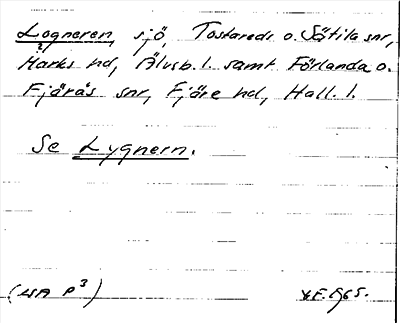 Logneren, sjö, Tostareds o. Sätila snr,
Marks hd, Älvsb. l. samt Förlanda o.
Fjärås snr, Fjäre hd, Hall. l.
Se Lygnern.
(LSA P3) 1965.